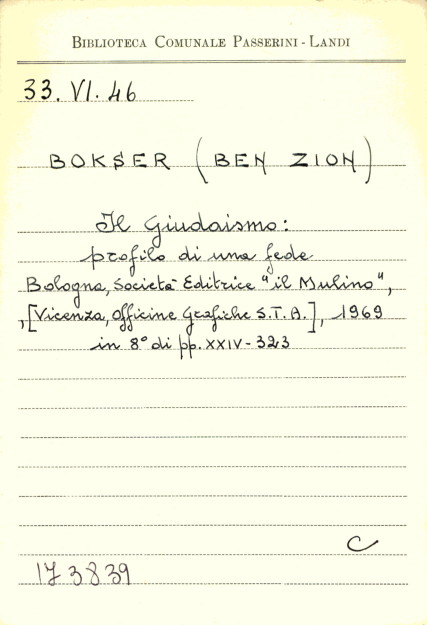 BIBLIOTECA COMUNALE PASSERINI - LANDI
33. VI. 46
BOKSER (BEN ZION)
Il Giudaismo:
profilo di una fede
Bologna, Società Editrice "il Mulino",
,[Vicenza, Officine Grafiche S.T.A.], 1969
in 8° di pp. XXIV-323
C
173839